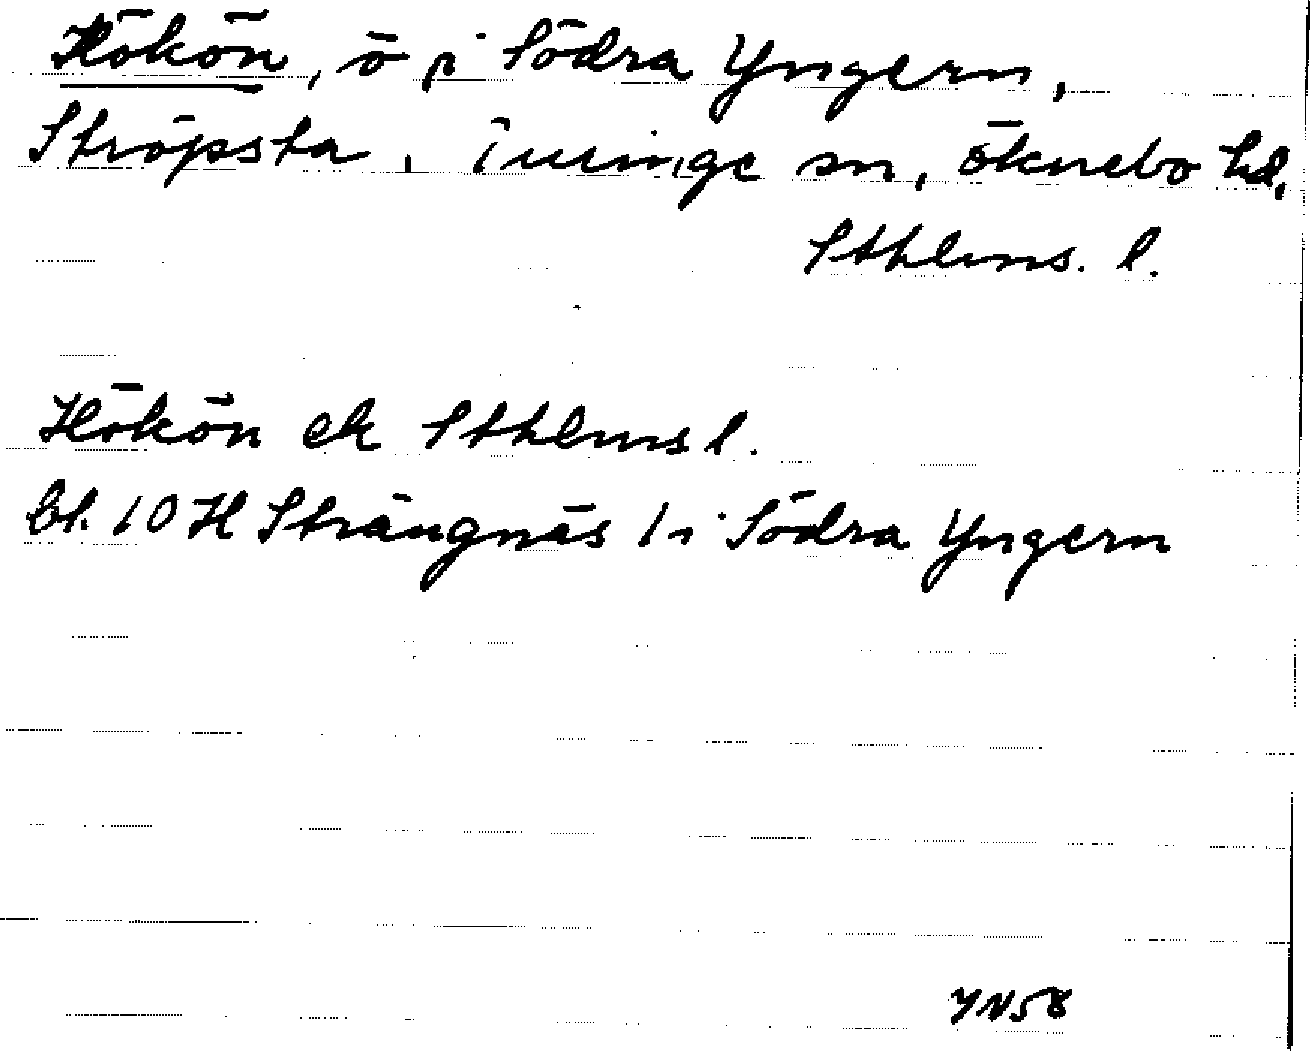 Hökön, ö i Södra Yngern,
Ströpsta, Turinge sn, Öknebo hd,
Sthlms. l.
Hökön ek Sthlms l.
bl. 10 H Strängnäs / i Södra Yngern
YN58